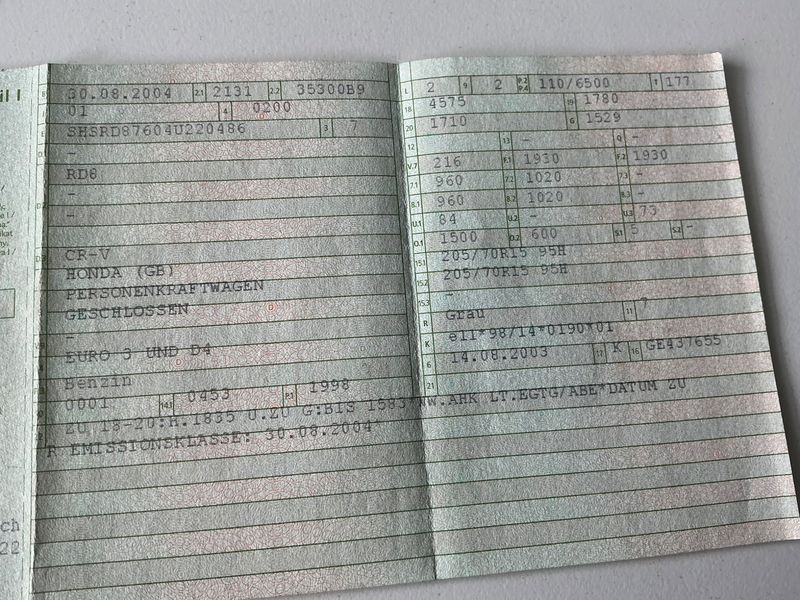 30.08.2004 2.1 2131 2.2 35300B9
01 4 0200
SHSRD87604U220486 3 7
-
RD8
-
-
CR-V
HONDA (GB)
PERSONENKRAFTWAGEN
GESCHLOSSEN
-
EURO 3 UND D4
Benzin
0001 14.1 0453 P.1 1998
ZU 18-20:H.1835 U.ZU G:BIS 1583 WW.AHK LT.EGTG/ABE*DATUM ZU
R EMISSIONSKLASSE: 30.08.2004*
L 2 9 2 P.2 P.4 110/6500 T 177
18 4575 19 1780
20 1710 G 1529
12 - 13 - Q -
V.7 216 F.1 1930 F.2 1930
7.1 960 7.2 1020 7.3 -
8.1 960 8.2 1020 8.3 -
U.1 84 U.2 - U.3 73
O.1 1500 O.2 600 S.1 5 S.2 -
15.1 205/70R15 95H
15.2 205/70R15 95H
15.3 -
R Grau 11 7
K e11*98/14*0190*01
6 14.08.2003 17 K 16 GE437655
21
ch
22